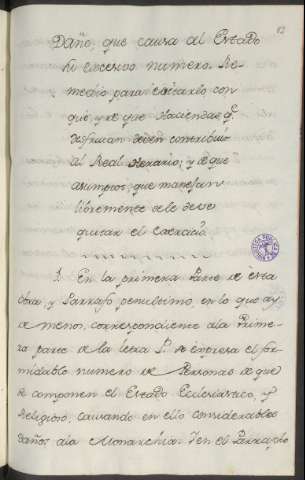 12
Daño, que causa al Estado
su excesivo numero. Re-
medio para evitarlo con
que, y de que Haciendas q.
disfrutan deven contribuir
al Real Herario; y de que
asumptos, que manejan
libremente se le deve
quitar el exercicio.
1. En la primera Parte de esta
obra, y Parrafo penultimo, en lo que ay
de menos, correspondiente ala Prime-
ra parte de la letra P. se expresa el for-
midable numero de Personas de que
se componen el Estado Eclesiastico, y
Religioso, causando en ello considerables
Daños ala Monarchia. Y en el Parrapho